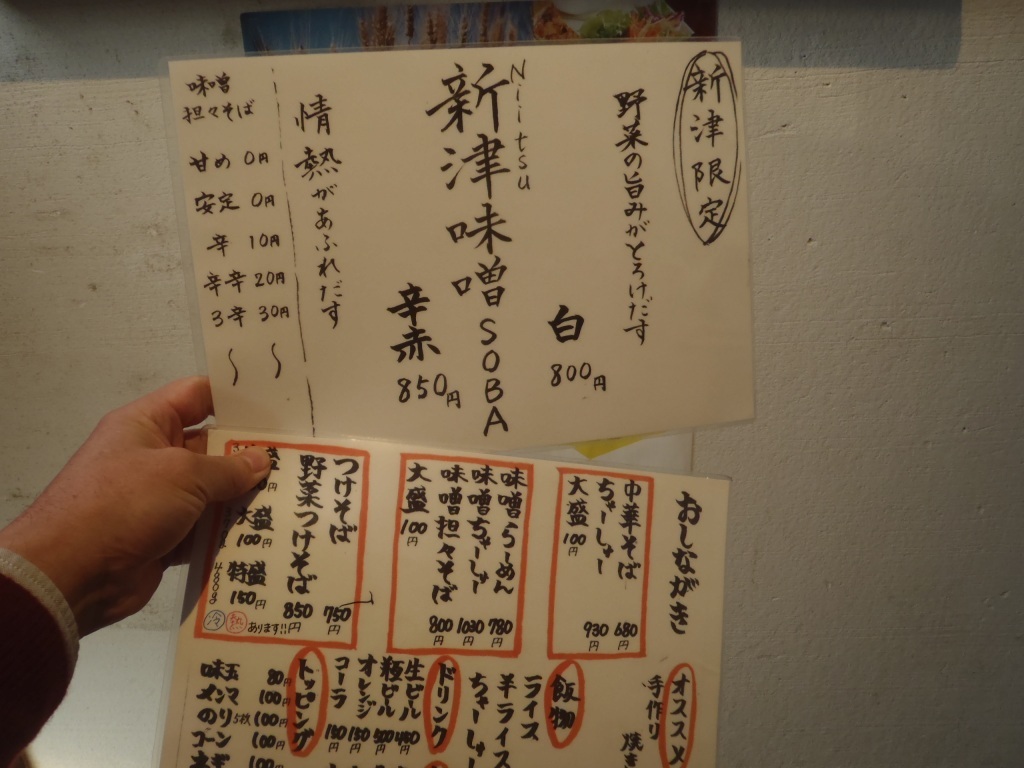 新津限定
野菜の旨みがとろけだす
白
800円
Niitsu
新津味噌SOBA
辛赤
850円
情熱があふれだす
味噌
担々そば
甘め 0円
安定 0円
辛 10円
辛辛 20円
3辛 30円
〜 〜
おしながき
中華そば 680円
ちゃーしゅー 930円
大盛 100円
味噌らーめん 780円
味噌ちゃーしゅー 1030円
味噌担々そば 800円
大盛 100円
つけそば 750円
野菜つけそば 850円
大盛 100円
特盛 150円
冷 熱 あります!!
オススメ
手作り
焼き
飯物
ライス
半ライス
ちゃーしゅー
ドリンク
生ビール 450
瓶ビール 500
オレンジ 150
コーラ 150
トッピング
味玉 80円
メンマ 100円
のり5枚 100円
コーン 100円
ネギ